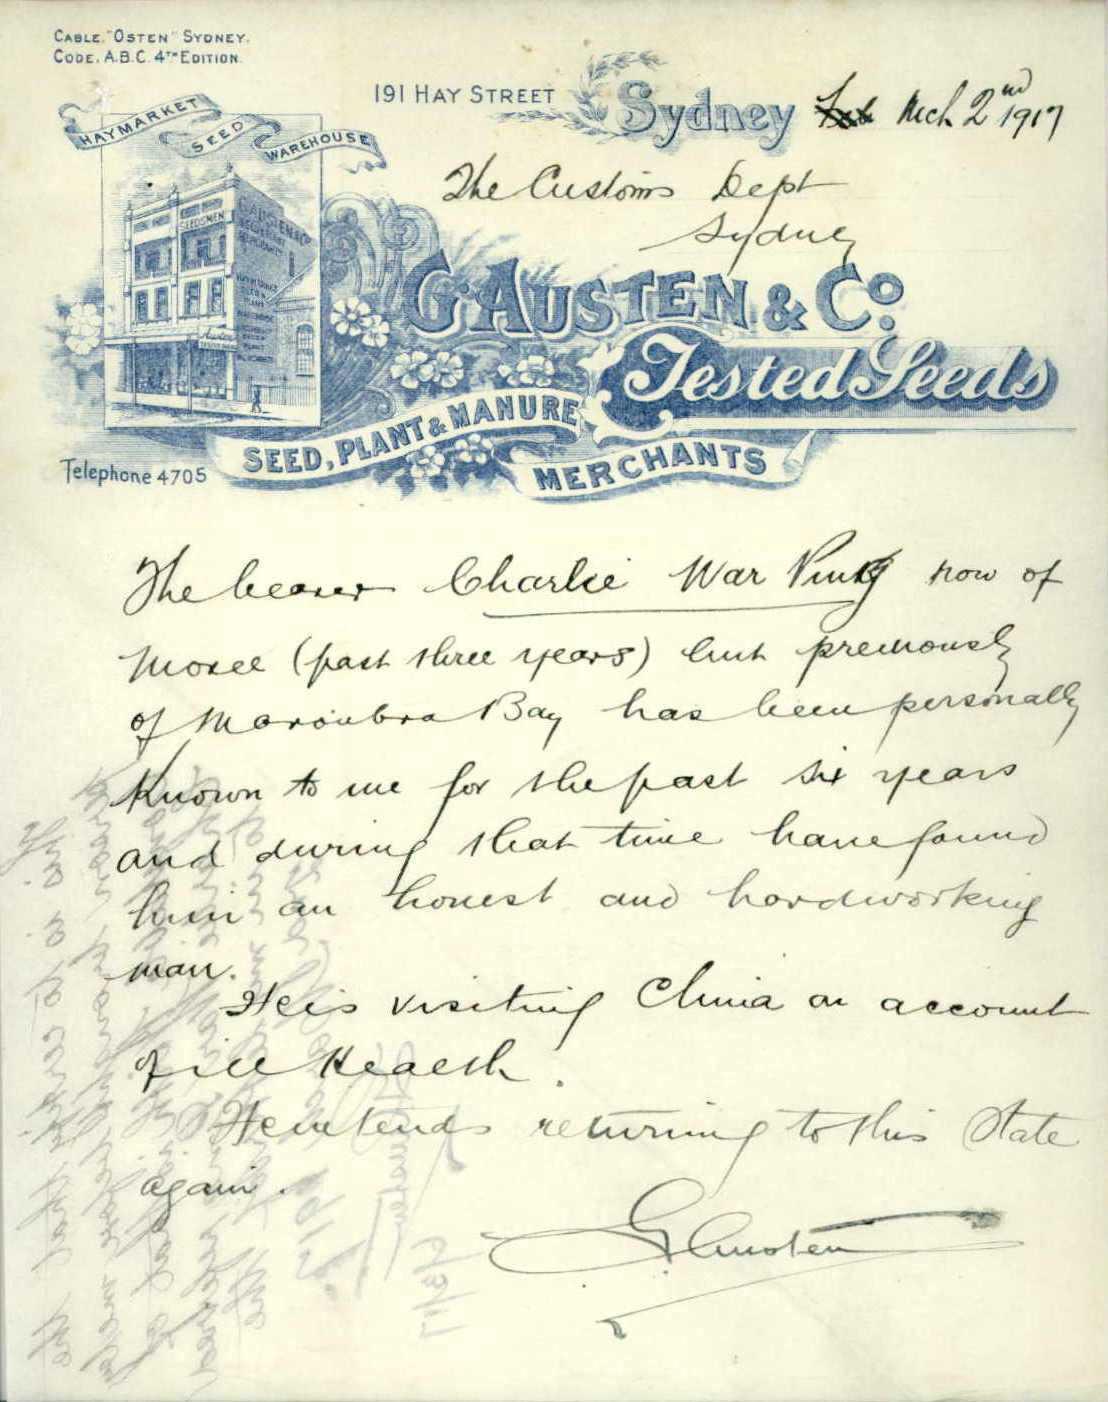 CABLE. "OSTEN" SYDNEY.
CODE, A.B.C. 4TH EDITION.
191 HAY STREET Sydney Mch 2nd 1917
HAYMARKET SEED WAREHOUSE
The Customs Dept
Sydney
SEEDSMEN
G. AUSTEN & CO.
Tested Seeds
SEED, PLANT & MANURE
MERCHANTS
Telephone 4705
The bearer Charlie War Ping now of
Moree (past three years) but previously
of Maroubra Bay has been personally
Known to me for the past six years
and during that time have found
him an honest and hardworking
man.
He is visiting China on account
of ill Health.
He intends returning to this State
again.
G. Austen